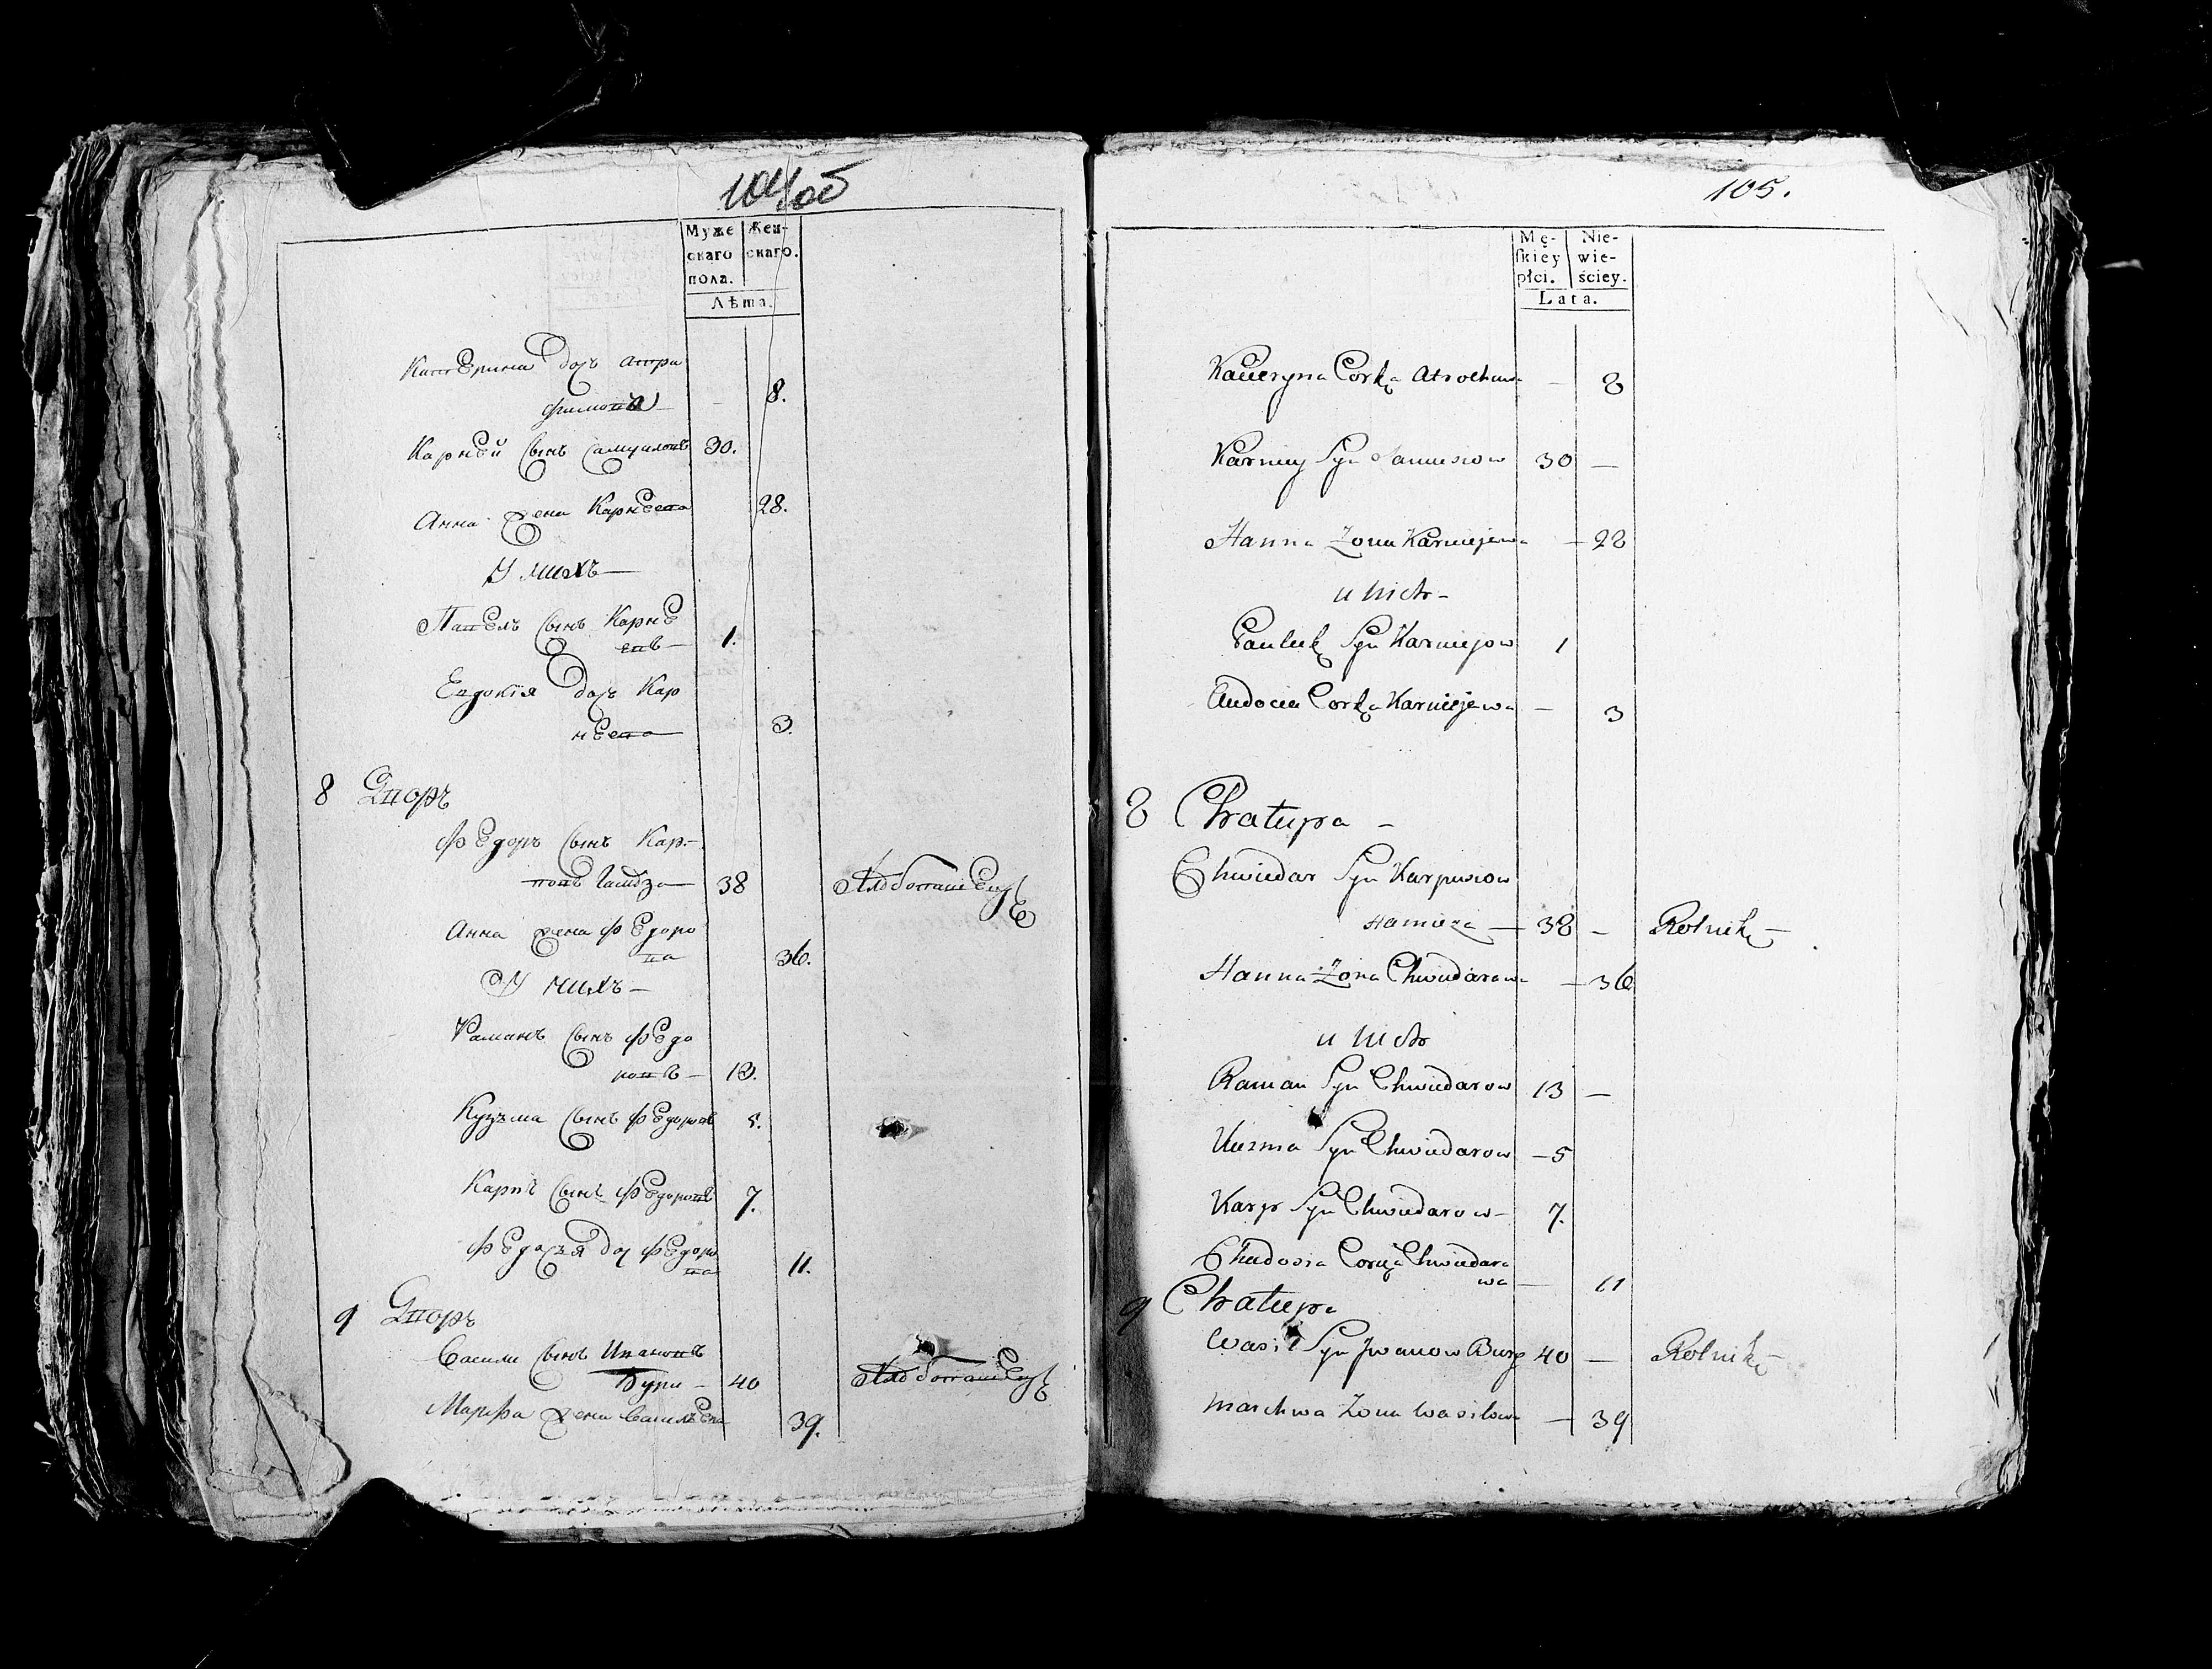 104 об
Муже
скаго
пола.
Жен-
скаго.
Лѣта.
Катерина доч Атра
фимова — 8.
Карнѣй сынъ Самуиловъ 30.
Анна жена Карнеева 28.
У нихъ —
Павелъ сынъ Карнѣ
евъ — 1.
Евдокія доч Кар
нѣева 3.
8 Дворъ
Федоръ сынъ Кар-
повъ 38 Хлѣбопашецъ
Анна жена Федоро
ва 36.
У нихъ —
Раманъ сынъ Федо
ровъ — 13.
Кузьма сынъ Федоровъ 5.
Карпъ сынъ Федоровъ 7.
Федосья доч Федоро
ва 11.
9 Дворъ
Васили сынъ Ивановъ
Бури — 40 Хлѣбопашецъ
Марфа жена Васильева 39.
105.
Mę-
ſkiey
płci.
Nie-
wie-
ściey.
Lata.
Kacieryna Corka Atrochowa — 8
Karniey Syn Samusiow 30 —
Hanna Żona Karniejewa — 28
u nich —
Pauluk Syn Karniejow 1
Audocia Corka Karniejewa — 3
8 Chatupa —
Chwiedar Syn Karpusiow
— 38 — Rolnik —
Hanna Żona Chwiedarowa — 36
u nich
Raman Syn Chwiedarow 13 —
Kuzma Syn Chwiedarow — 5
Karp Syn Chwiedarow — 7.
Chudosia Corka Chwiedaro
wa — 11
9 Chatupa
Wasil Syn Jwanow Bury 40 — Rolnik —
Marchwa Żona Wasilowa — 39